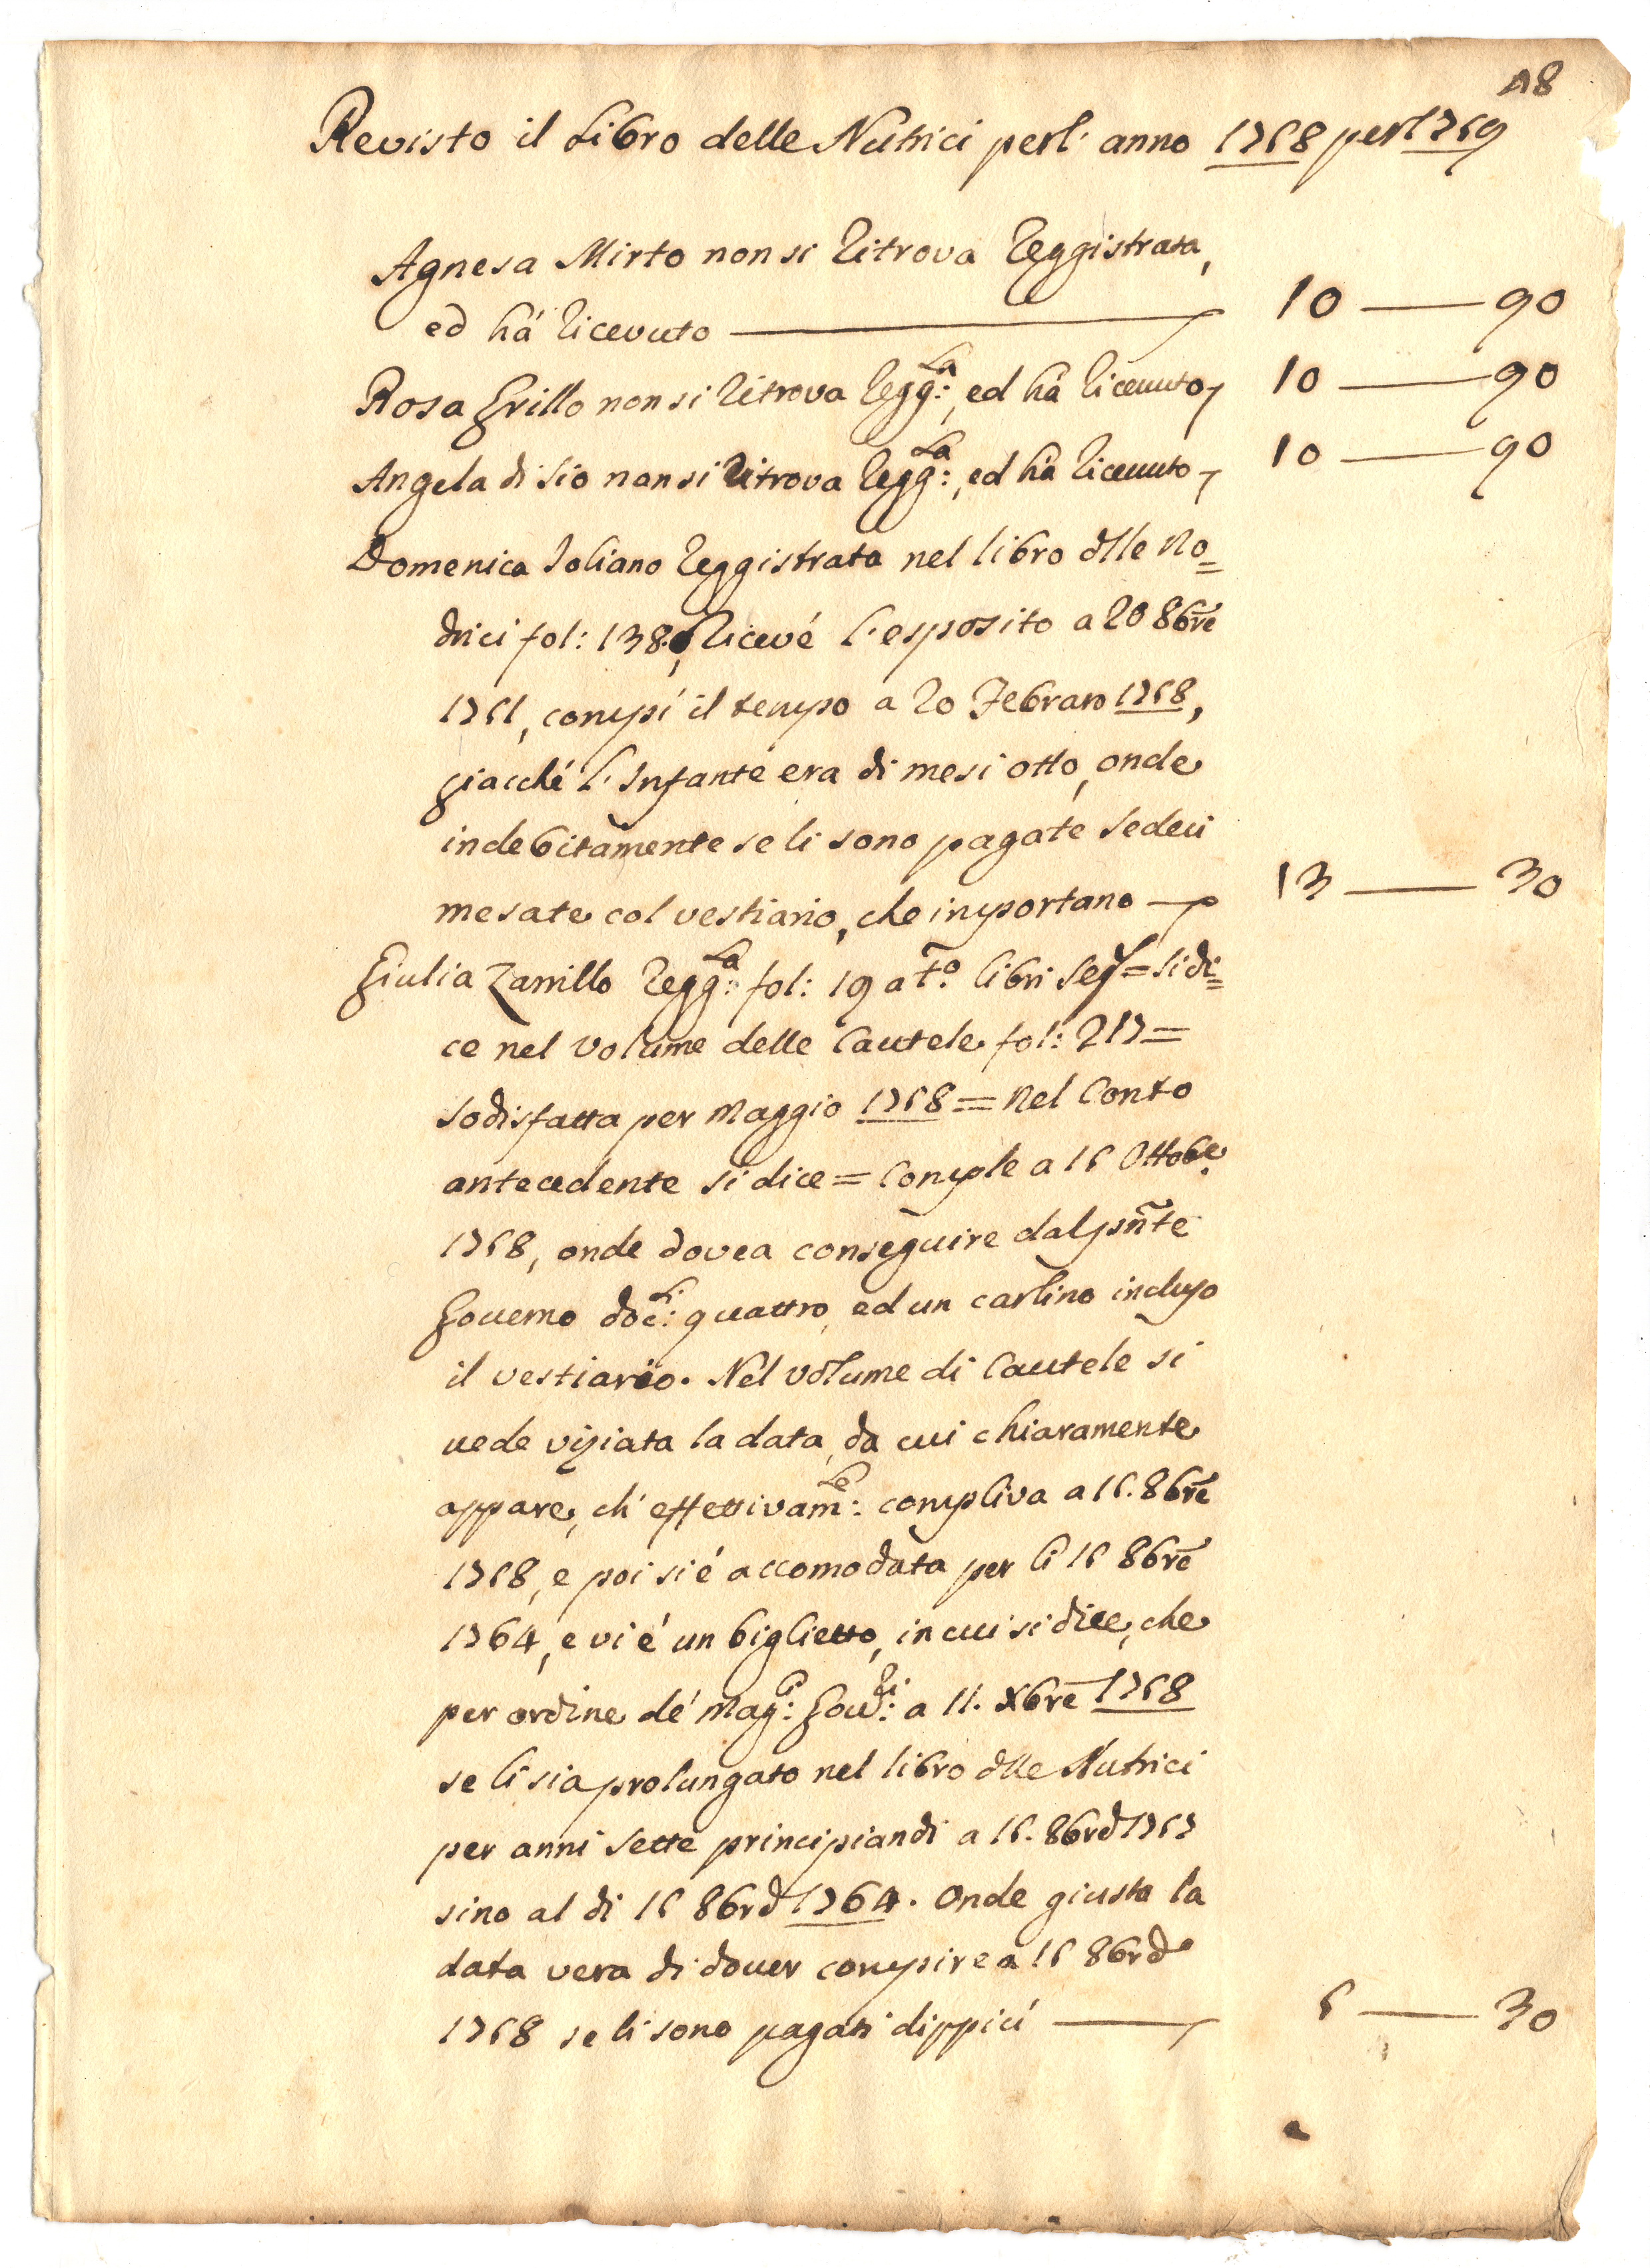 18
Revisto il Libro delle Nutrici perl' anno 1758 perl 1759
Agnesa Mirto non si ritrova reggistrata,
ed há ricevuto 10 — 90
Rosa Grillo non si ritrova regg:ta, ed há ricevuto 10 — 90
Angela di Sio non si ritrova regg:ta, ed há ricevuto 10 — 90
Domenica Soliano reggistrata nel libro dlle No=
drici fol: 138, ricevé l'esposito a 20 8bre
1751, compí il tempo a 20 Febraro 1758,
giacché l'Infante era di mesi otto, onde
indebitamente se li sono pagate sedeci
mesate col vestiario, che importano 13 — 30
Giulia Zarrillo regg:ta fol: 19 a to. libri seq= si di=
ce nel volume delle Cautele fol: 217=
sodisfatta per Maggio 1758 = Nel Conto
antecedente si dice = Comple a 15 Ottobe.
1758, onde dovea conseguire dal pnte
Governo doc:ti quattro, ed un carlino incluso
il vestiario. Nel volume di Cautele si
vede viziata la data, da cui chiaramente
appare, ch' effettivam:te compliva a 15. 8bre
1758, e poi si é accomodata per li 15 8bre
1764, e vi é un biglietto, in cui si dice, che
per ordine de' Mag:ci Gov:ri a 11. Xbre 1758
se li sia prolungato nel libro dlle Nutrici
per anni sette principiandi a 15. 8brd 1757
sino al di 15 8brd 1764. Onde giusta la
data vera di dover compire a 15 8brd
1758 se li sono pagati dippiú 5 — 30